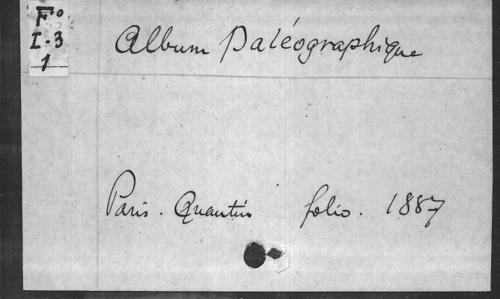 Fo
I-3
1
Album Paléographique
Paris. Quantin folio. 1887